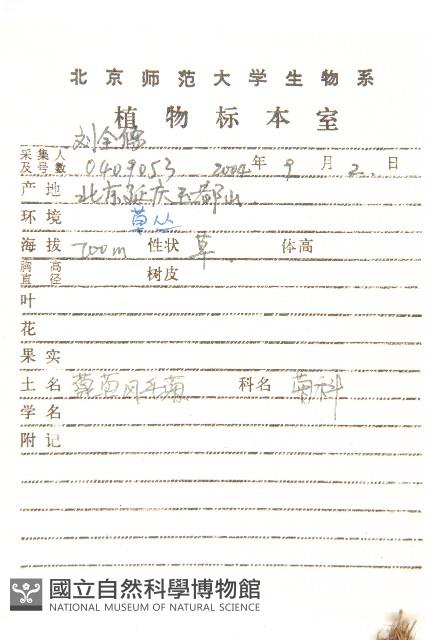 北京师范大学生物系
植物标本室
采集人及号数 刘全儒 0409053 2004年9月2日
产地 北京延庆玉都山
环境 草丛
海拔 700m 性状 草 体高
胸高直径 树皮
叶
花
果实
土名 风毛菊 科名 菊科
学名
附记
國立自然科學博物館
NATIONAL MUSEUM OF NATURAL SCIENCE